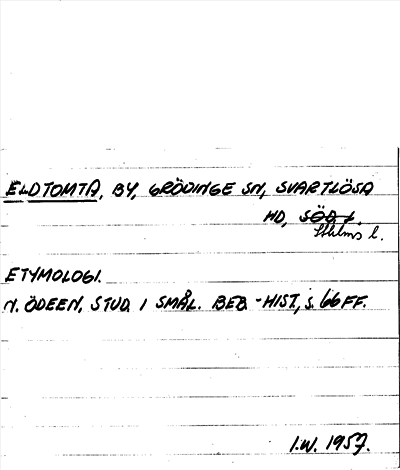 ELDTOMTA, BY, GRÖDINGE SN, SVARTLÖSA
HD, SÖD L.
Sthlms l.
ETYMOLOGI.
N. ÖDEEN, STUD. I SMÅL. BEB.-HIST, S. 66 FF.
I.W. 1957.